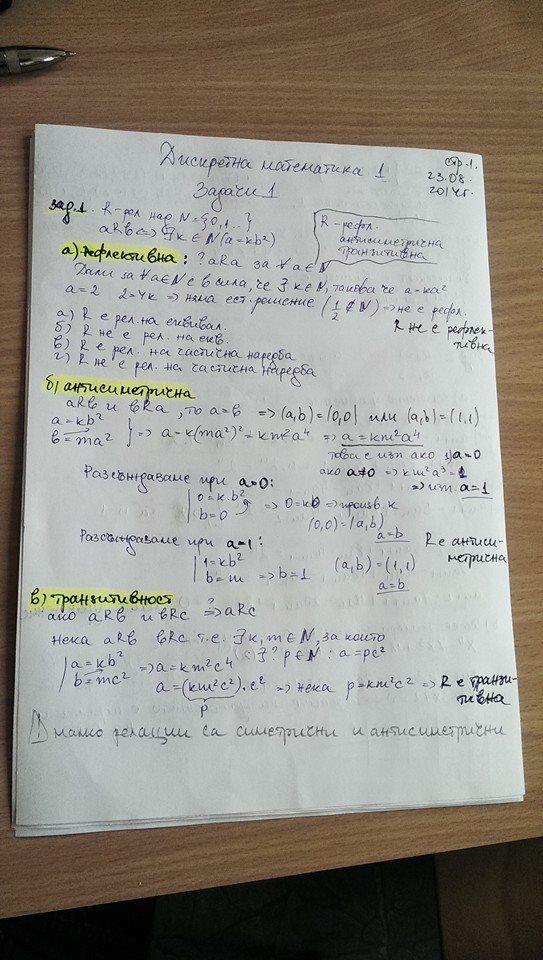 Дискретна математика 1
стр.1.
23.08.
2014г.
Задачи 1
зад.1. R-рел над N={0,1..}
aRb <=> ∃k∈N(a=kb²)
R-рефл.
антисиметрична
транзитивна
а) рефлективна: ? aRa за ∀a∈N
Дали за ∀a∈N е в сила, че ∃k∈N, такова че a=ka²
a=2 2=4k => няма ест. решение (1/2 ∉ N) => не е рефл.
R не е рефлек-
тивна
а) R е рел. на еквивал.
б) R не е рел. на екв.
в) R е рел. на частична наредба
г) R не е рел. на частична наредба
б) антисиметрична
aRb и bRa, то a=b => (a,b)=(0,0) или (a,b)=(1,1)
a=kb²
b=ma² } => a=k(ma²)²=km²a⁴ => a=km²a⁴
това е изп. ако 1) a=0
ако a≠0 => km²a³=1
=> изп. a=1
Разсъждаваме при a=0:
0=k.b²
b=0 => 0=k0 => произв. k
(0,0)=(a,b)
a=b
Разсъждаваме при a=1:
R е антиси-
метрична
1=kb²
b=m => b=1
(a,b)=(1,1)
a=b
в) транзитивност
ако aRb и bRc =>? aRc
нека aRb bRc т.е. ∃k,m∈N, за които
∃? p∈N: a=pc²
a=kb²
b=mc² => a=km²c⁴
a=(km²c²).c² => нека p=km²c² => R е транзи-
тивна
p
! малко релации са симетрични и антисиметрични